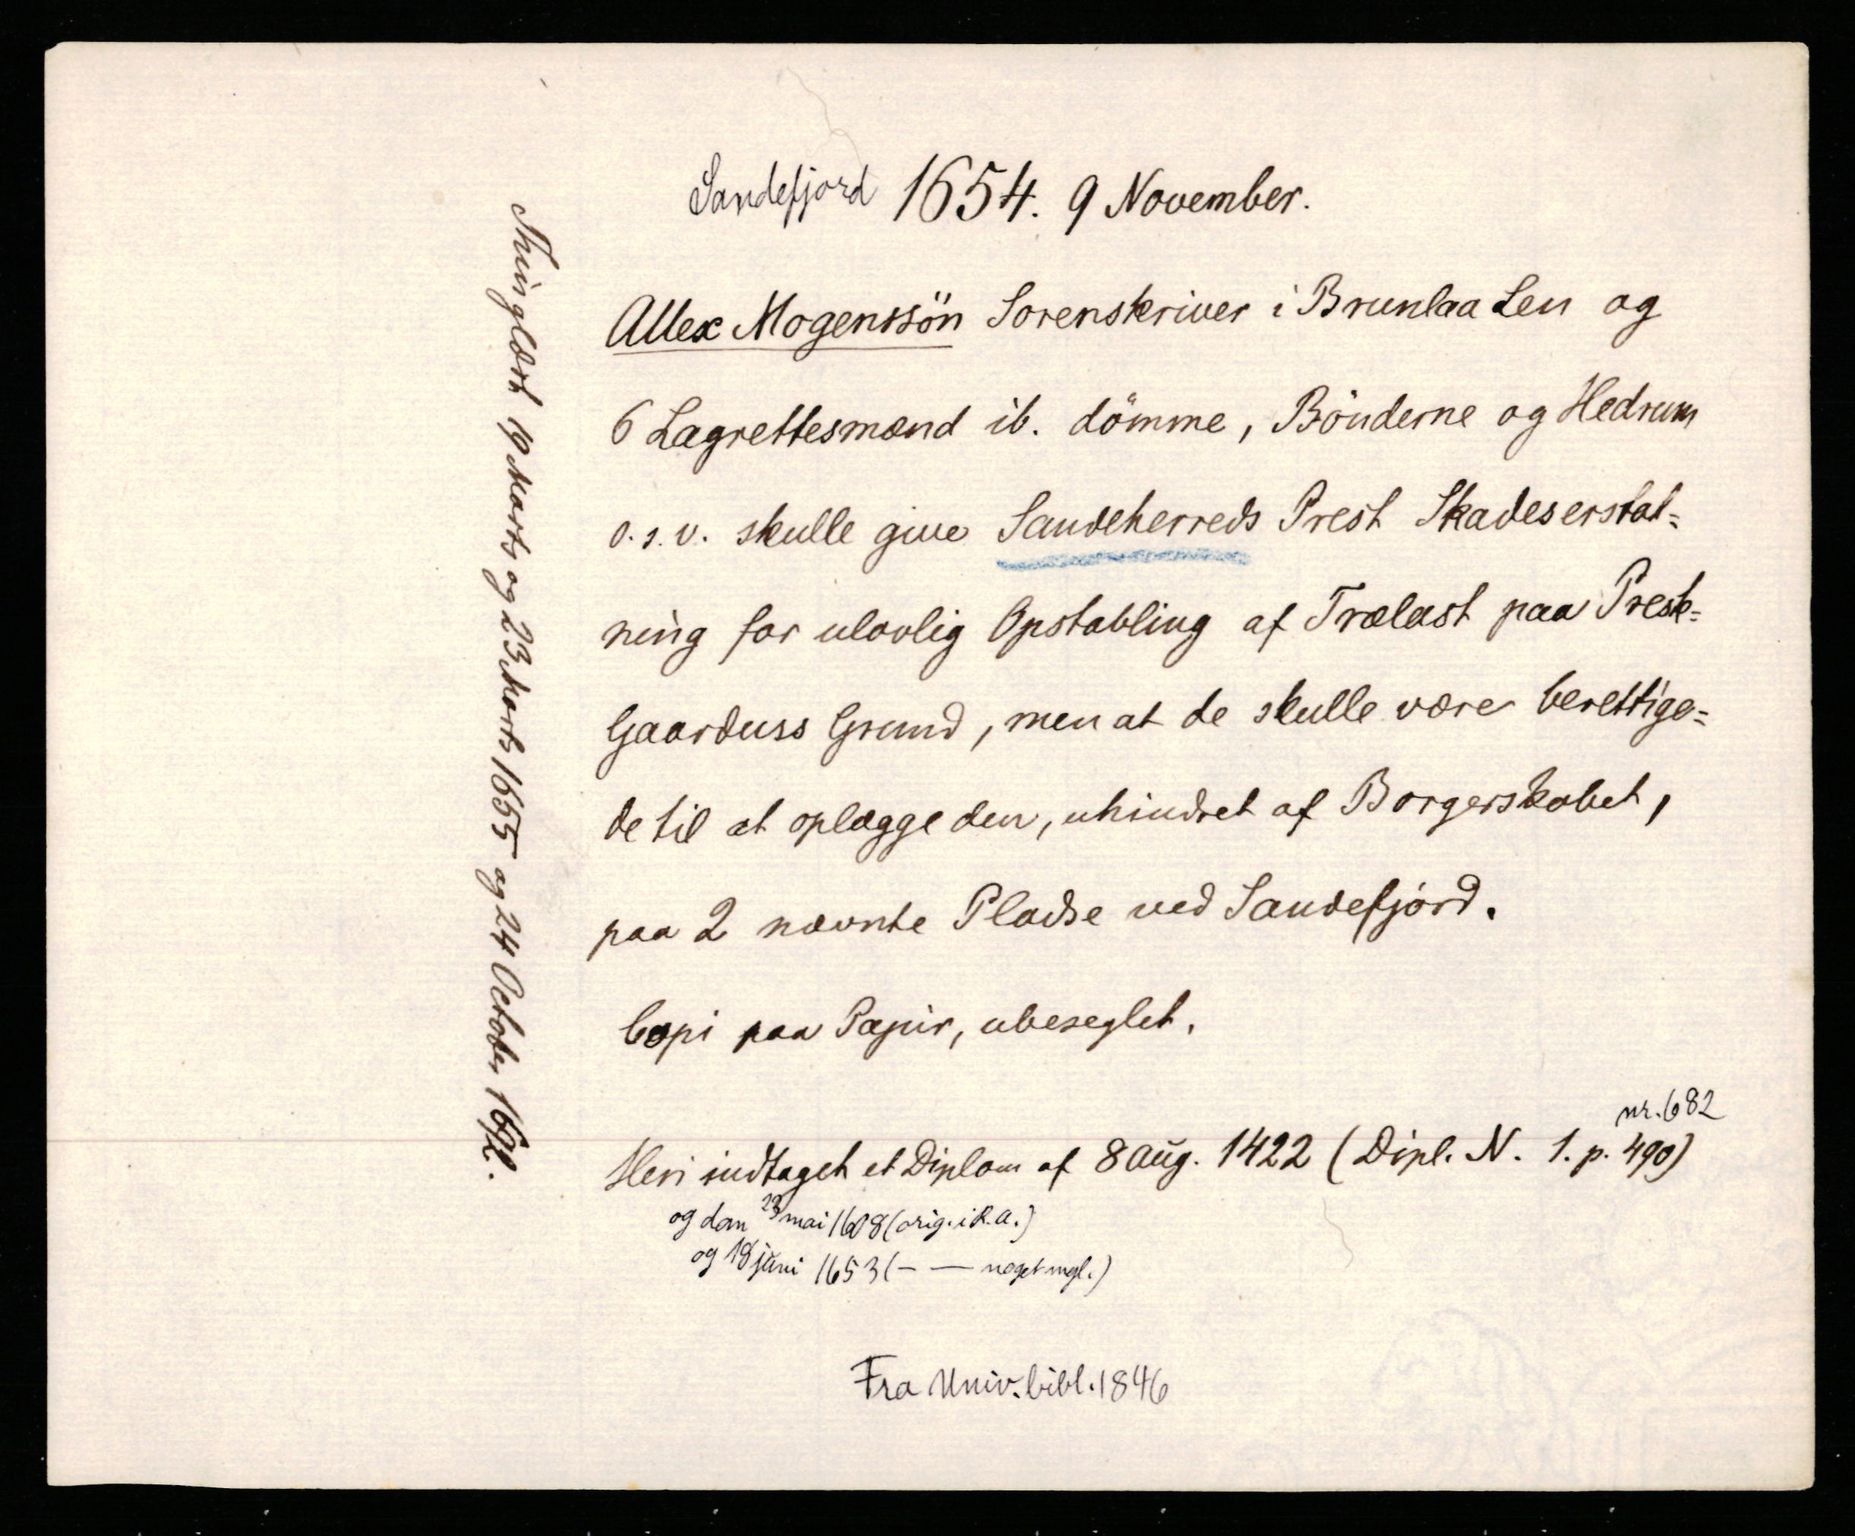 Sandefjord 1654. 9 November.
Allex Mogenssön Sorenskriver i Brunlaa Len og
6 Lagrettesmænd ib. dömme, Bönderne og Hedrum
o. s. v. skulle give Sandeherreds Prest Skadeserstat-
ning for ulovlig Opstabling af Trælast paa Prest-
Gaardens Grund, men at de skulle være berettige-
de til at oplægge den, uhindret af Borgerskabet,
paa 2 nævnte Pladse ved Sandefjord.
Copi paa Papir, ubeseglet.
nr. 682
Heri indtaget et Diplom af 8 Aug. 1422 (Dipl. N. 1. p. 490)
og dom 23 mai 1608 (orig. i R.A.)
og 18 juni 1653 (— — noget mgl.)
Fra Univ.bibl. 1846
Thinglæst 19 Marts og 23 Marts 1655 og 24 October